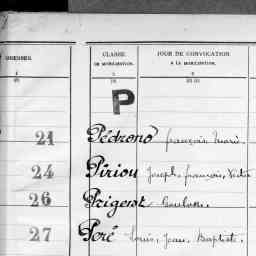 CLASSE
DE MOBILISATION.
JOUR DE CONVOCATION
À LA MOBILISATION.
P
21 Pédrono françois Marie
24 Piriou Joseph, françois, Victor
26 Prigent
27 Peré Louis, Jean, Baptiste.